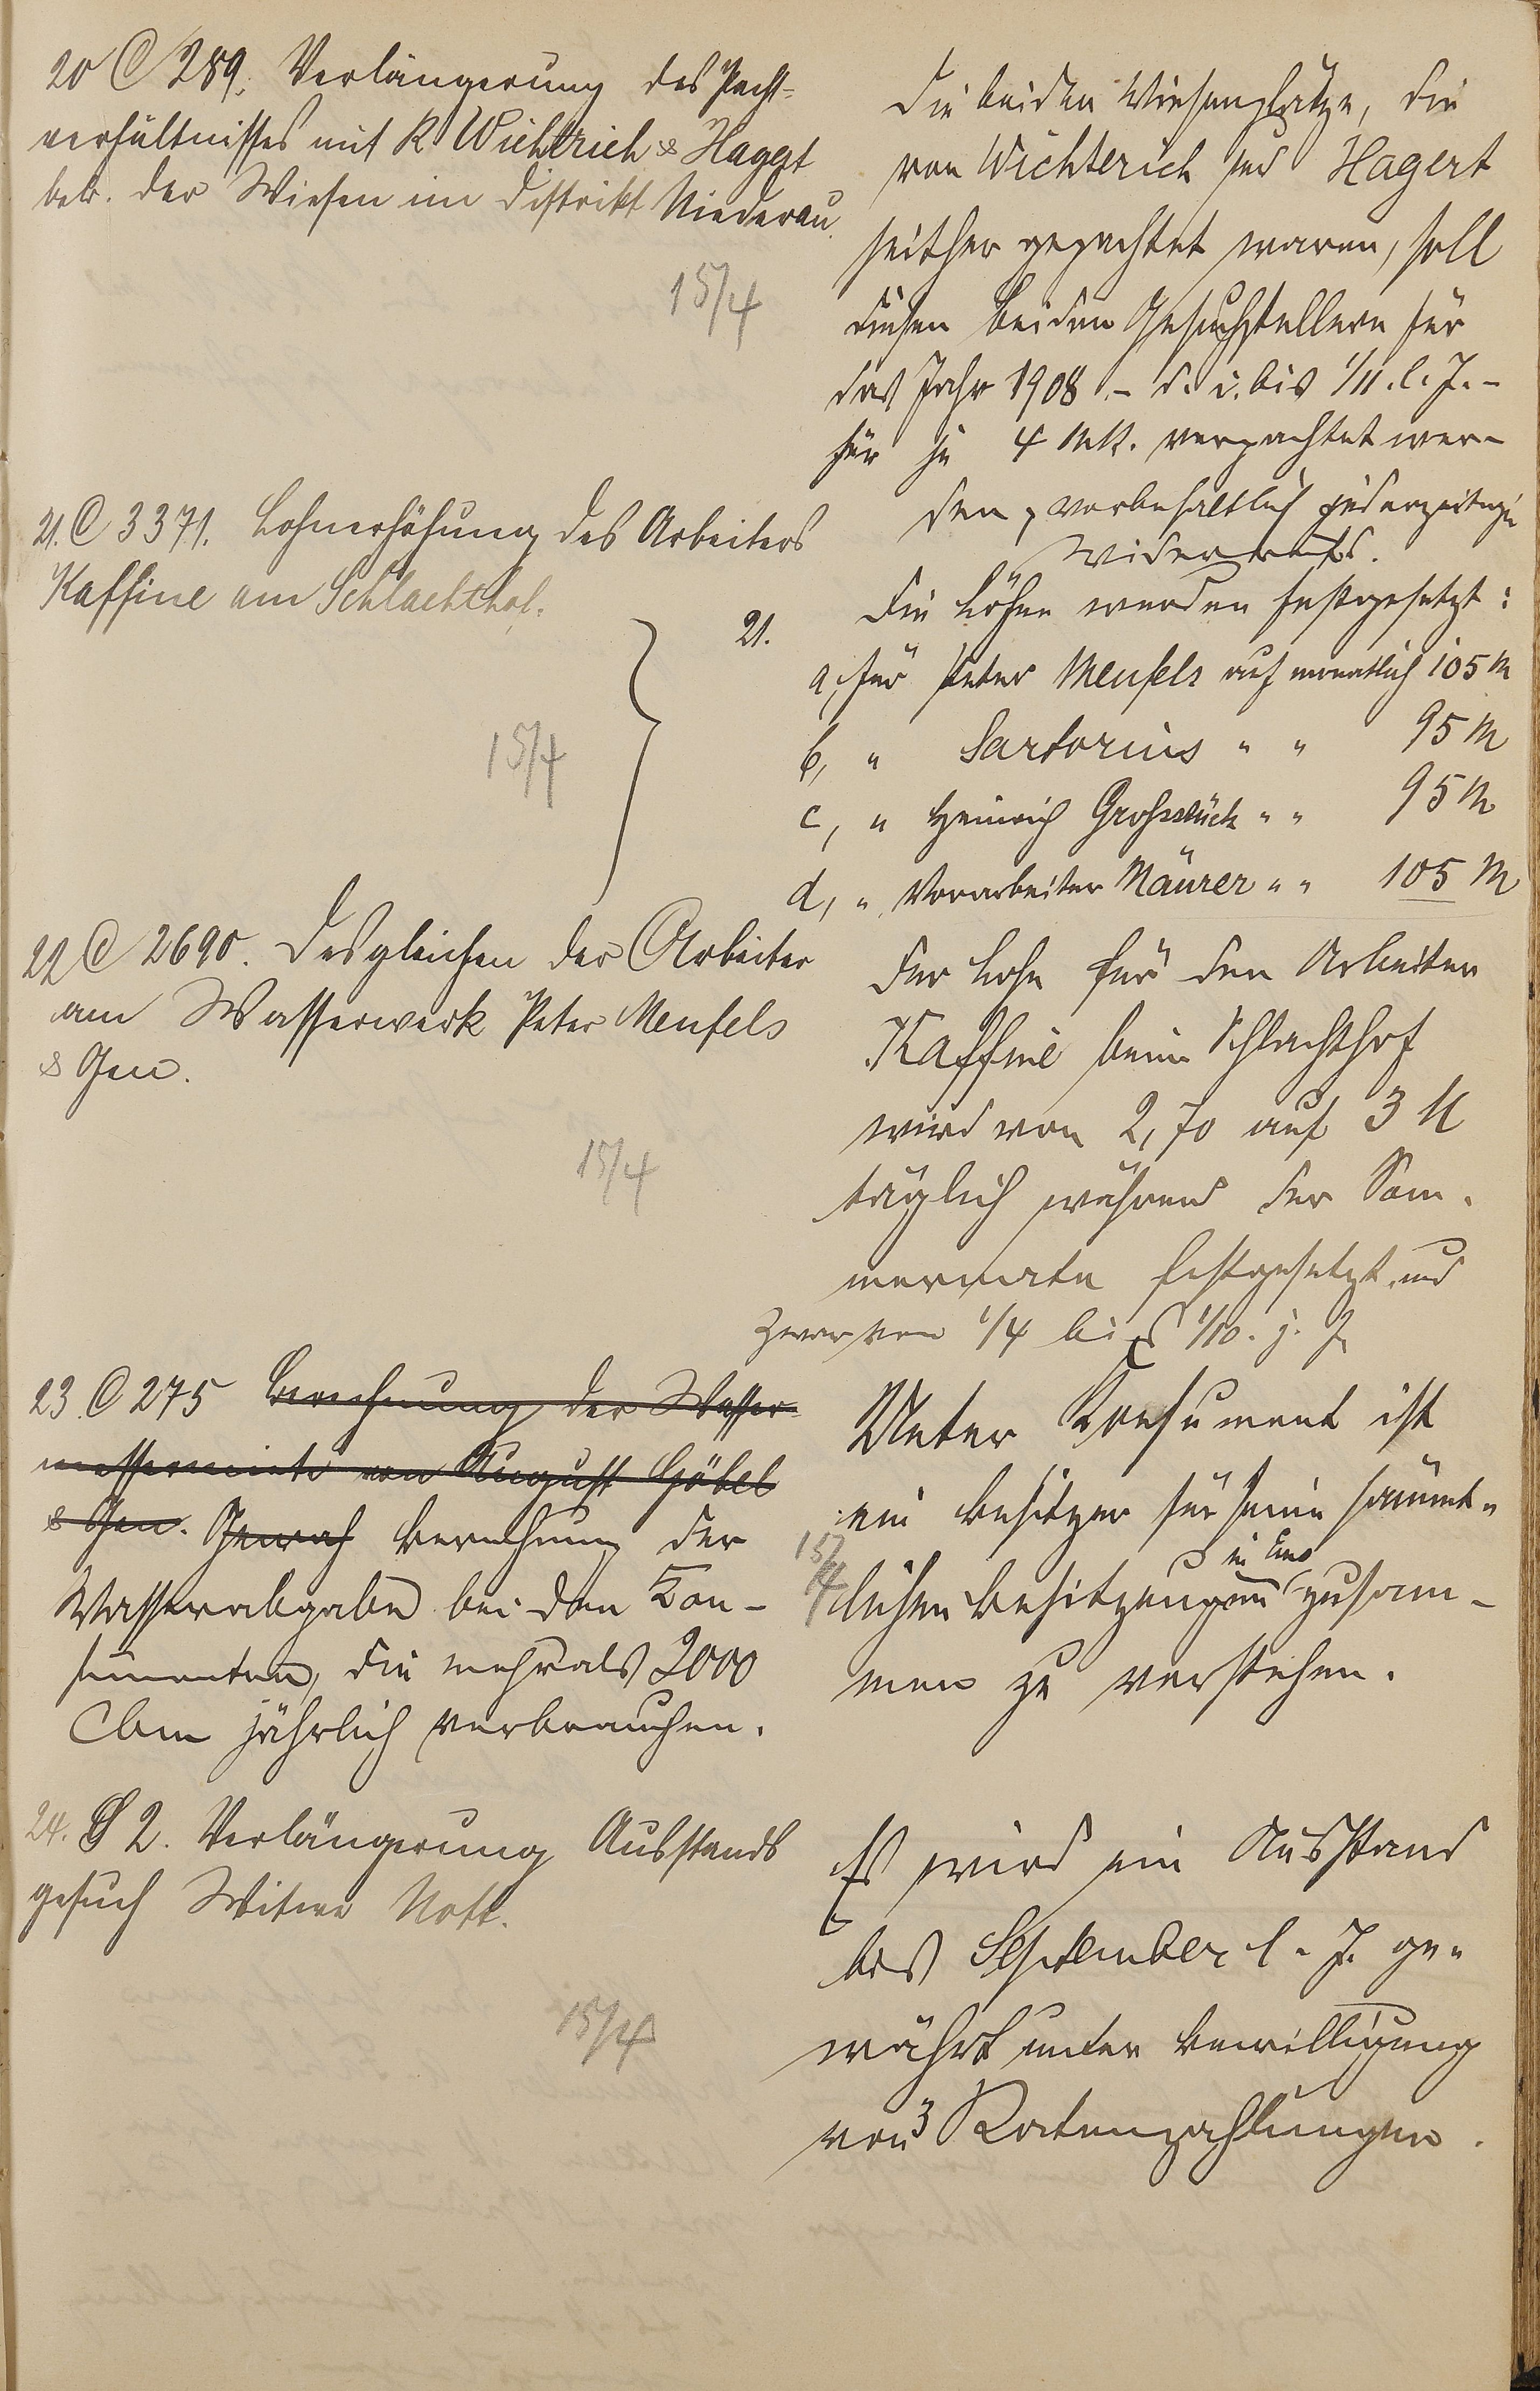 20 C 289. Verlängerung des Pacht-
verhältnisses mit K Wichtrich & Haggt
betr. der Wiesen im Distrikt Niederau.
15/4
Die beiden Wiesenplätze, die
von Wichterich und Hagert
seither gepachtet waren, soll
diesen beiden Gesuchstellern für
das Jahr 1908 - d. i. bis 1/11. l. J. -
für je 4 Mk. verpachtet wer-
den, vorbehaltlich jederzeitigen
Widerrufs.
21. C 3371. Lohnerhöhung des Arbeiters
Kaffine am Schlachthof.
15/4
21. Die Löhne werden festgesetzt:
a, für Peter Menfels auf monatlich 105 M
b, " Sartorius " " 95 M
c, " Heinrich Großstück " " 95 M
d, " Vorarbeiter Mäurer " " 105 M
22 C 2690. Desgleichen der Arbeiter
am Wasserwerk Peter Menfels
& Gen.
15/4
Der Lohn für den Arbeiter
Kaffine beim Schlachthof
wird von 2,70 auf 3 M
täglich während der Som-
mermonate festgesetzt und
zwar von 1/4 bis 1/10. j. J.
23. C 275 Berechnung der Wasser-
messermiete von August Göbel
& Gen. Berechnung der
Wasserabgabe bei den Kon-
sumenten, die mehr als 2000
Cbm jährlich verbrauchen.
Unter Konsument ist
ein Besitzer für seine sämmt-
15/4
lichen Besitzungen in Ems zusam-
men zu verstehen.
24. § 2. Verlängerung Ausstands
gesuch Witwe Noll.
15/4
Es wird ein Ausstand
bis September l. J. ge-
währt unter Bewilligung
von 3 Ratenzahlungen.